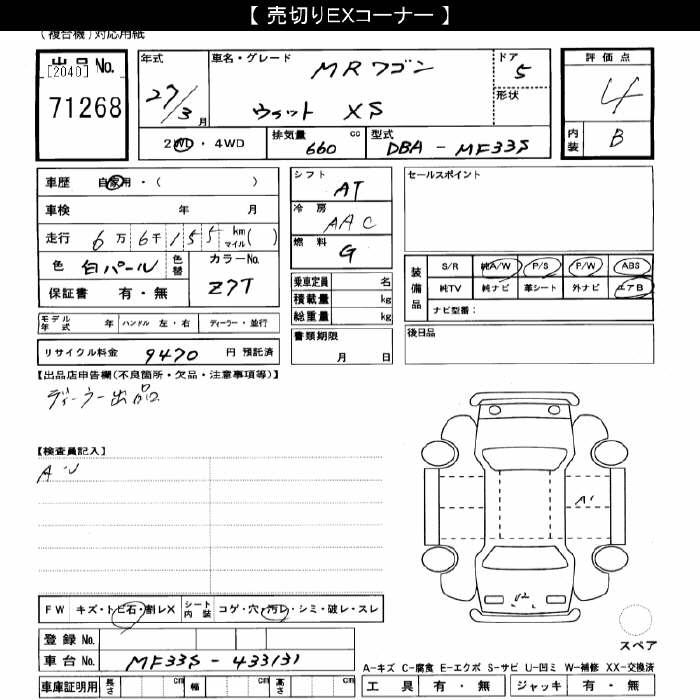 【 売切りEXコーナー 】
(複合機)対応用紙
出品 No.
[2040]
71268
年式
27/3月
車名・グレード
MRワゴン
ウィット XS
ドア
5
形状
評価点
4
内装 B
2WD・4WD
排気量 660 cc
型式 DBA - MF33S
車歴 自家用・( )
車検 年 月
走行 6万6千155 km マイル( )
色 白パール 色替
カラーNo. Z7T
保証書 有・無
モデル年式 年 ハンドル 左・右 ディーラー・並行
リサイクル料金 9470 円 預託済
シフト AT
冷房 AAC
燃料 G
乗車定員 名
積載量 kg
総重量 kg
書類期限
月 日
セールスポイント
装備品
S/R 純A/W P/S P/W ABS
純TV 純ナビ 革シート 外ナビ エアB
ナビ型番:
後日品
【出品店申告欄(不良箇所・欠品・注意事項等)】
ディーラー出品
【検査員記入】
A・U
A1
U2
FW キズ・トビ石・割レX シート内装 コゲ・穴・汚レ・シミ・破レ・スレ
登録 No.
車台 No. MF33S - 433131
車庫証明用 長さ cm 幅 cm 高さ cm
スペア
A-キズ C-腐食 E-エクボ S-サビ U-凹ミ W-補修 XX-交換済
工具 有・無 ジャッキ 有・無